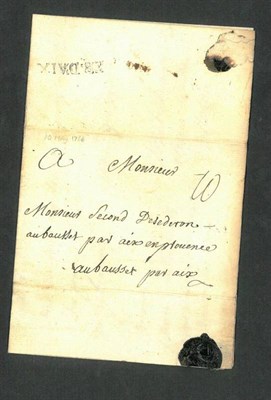 A Monsieur
Monsieur Second De sederon
au bausset par aix en provence
au bausset par aix